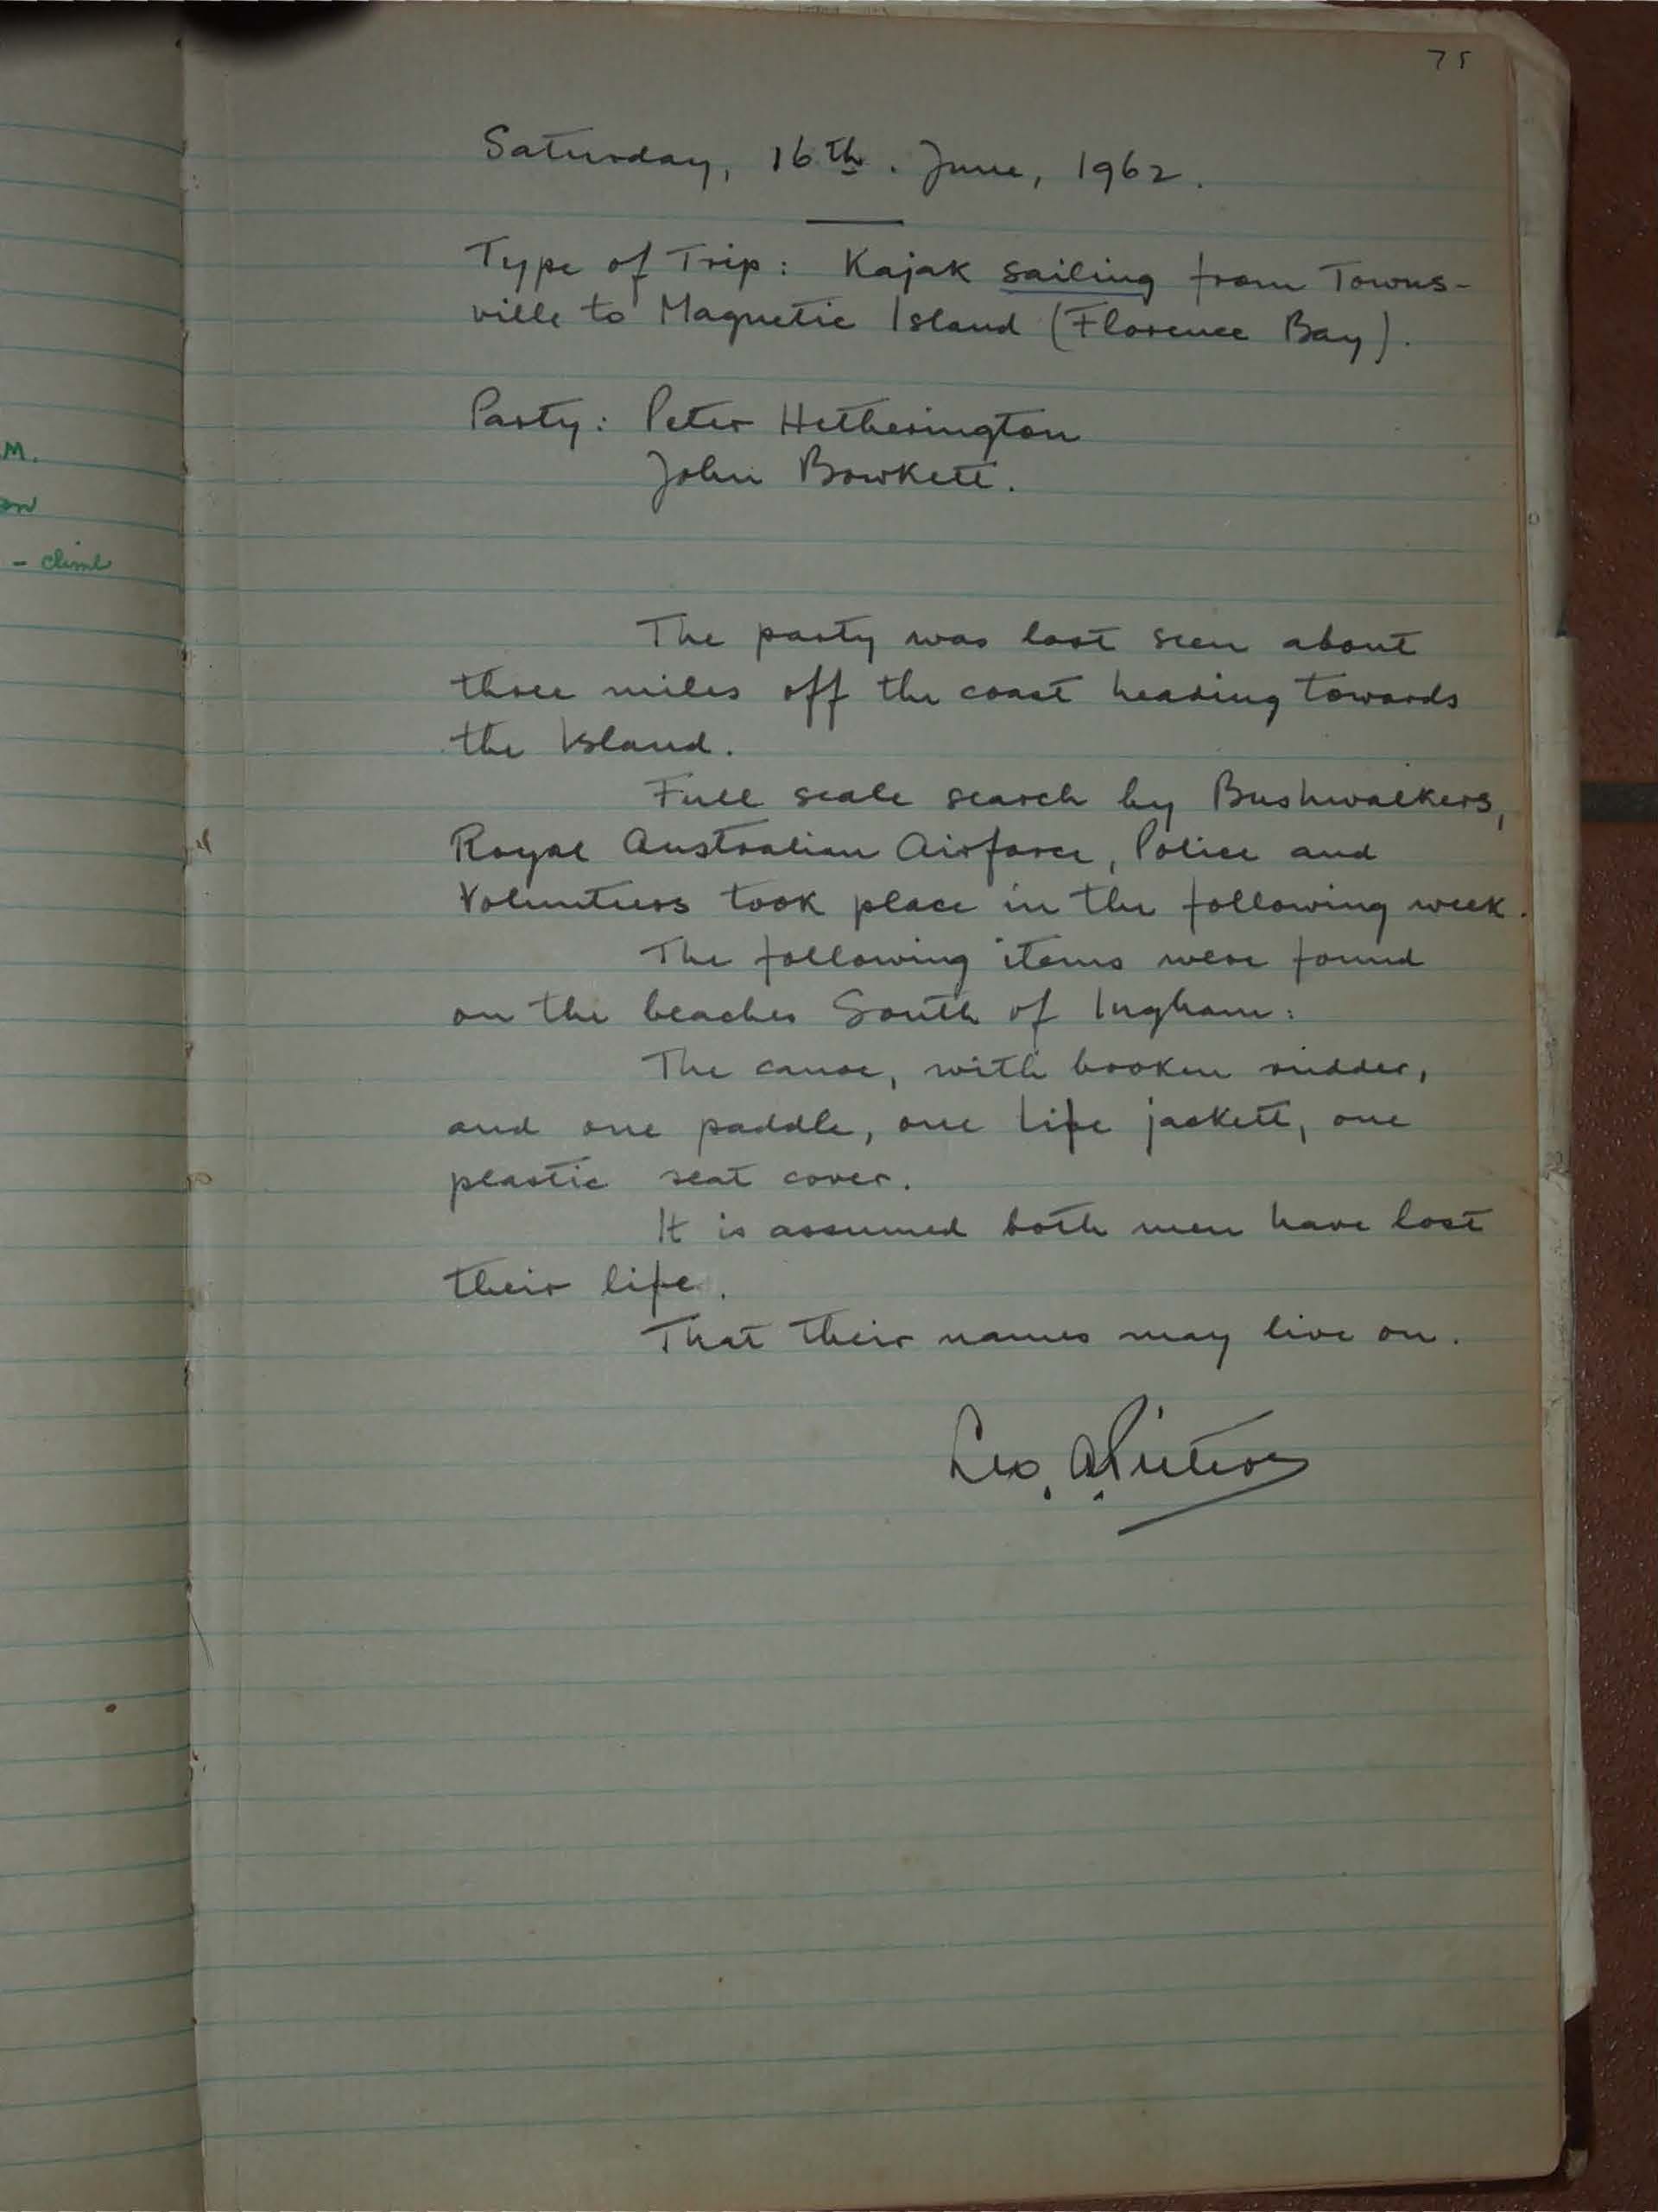 75
Saturday, 16th. June, 1962.
Type of Trip: Kajak sailing from Towns-
ville to Magnetic Island (Florence Bay).
Party: Peter Hetherington
John Bowkett.
M.
on
- climb
The party was last seen about
three miles off the coast heading towards
the Island.
Full scale search by Bushwalkers,
Royal Australian Airforce, Police and
Volunteers took place in the following week.
The following items were found
on the beaches South of Ingham:
The canoe, with broken rudder,
and one paddle, one life jackett, one
plastic seat cover.
It is assumed both men have lost
their life.
That their names may live on.
Leo. A.